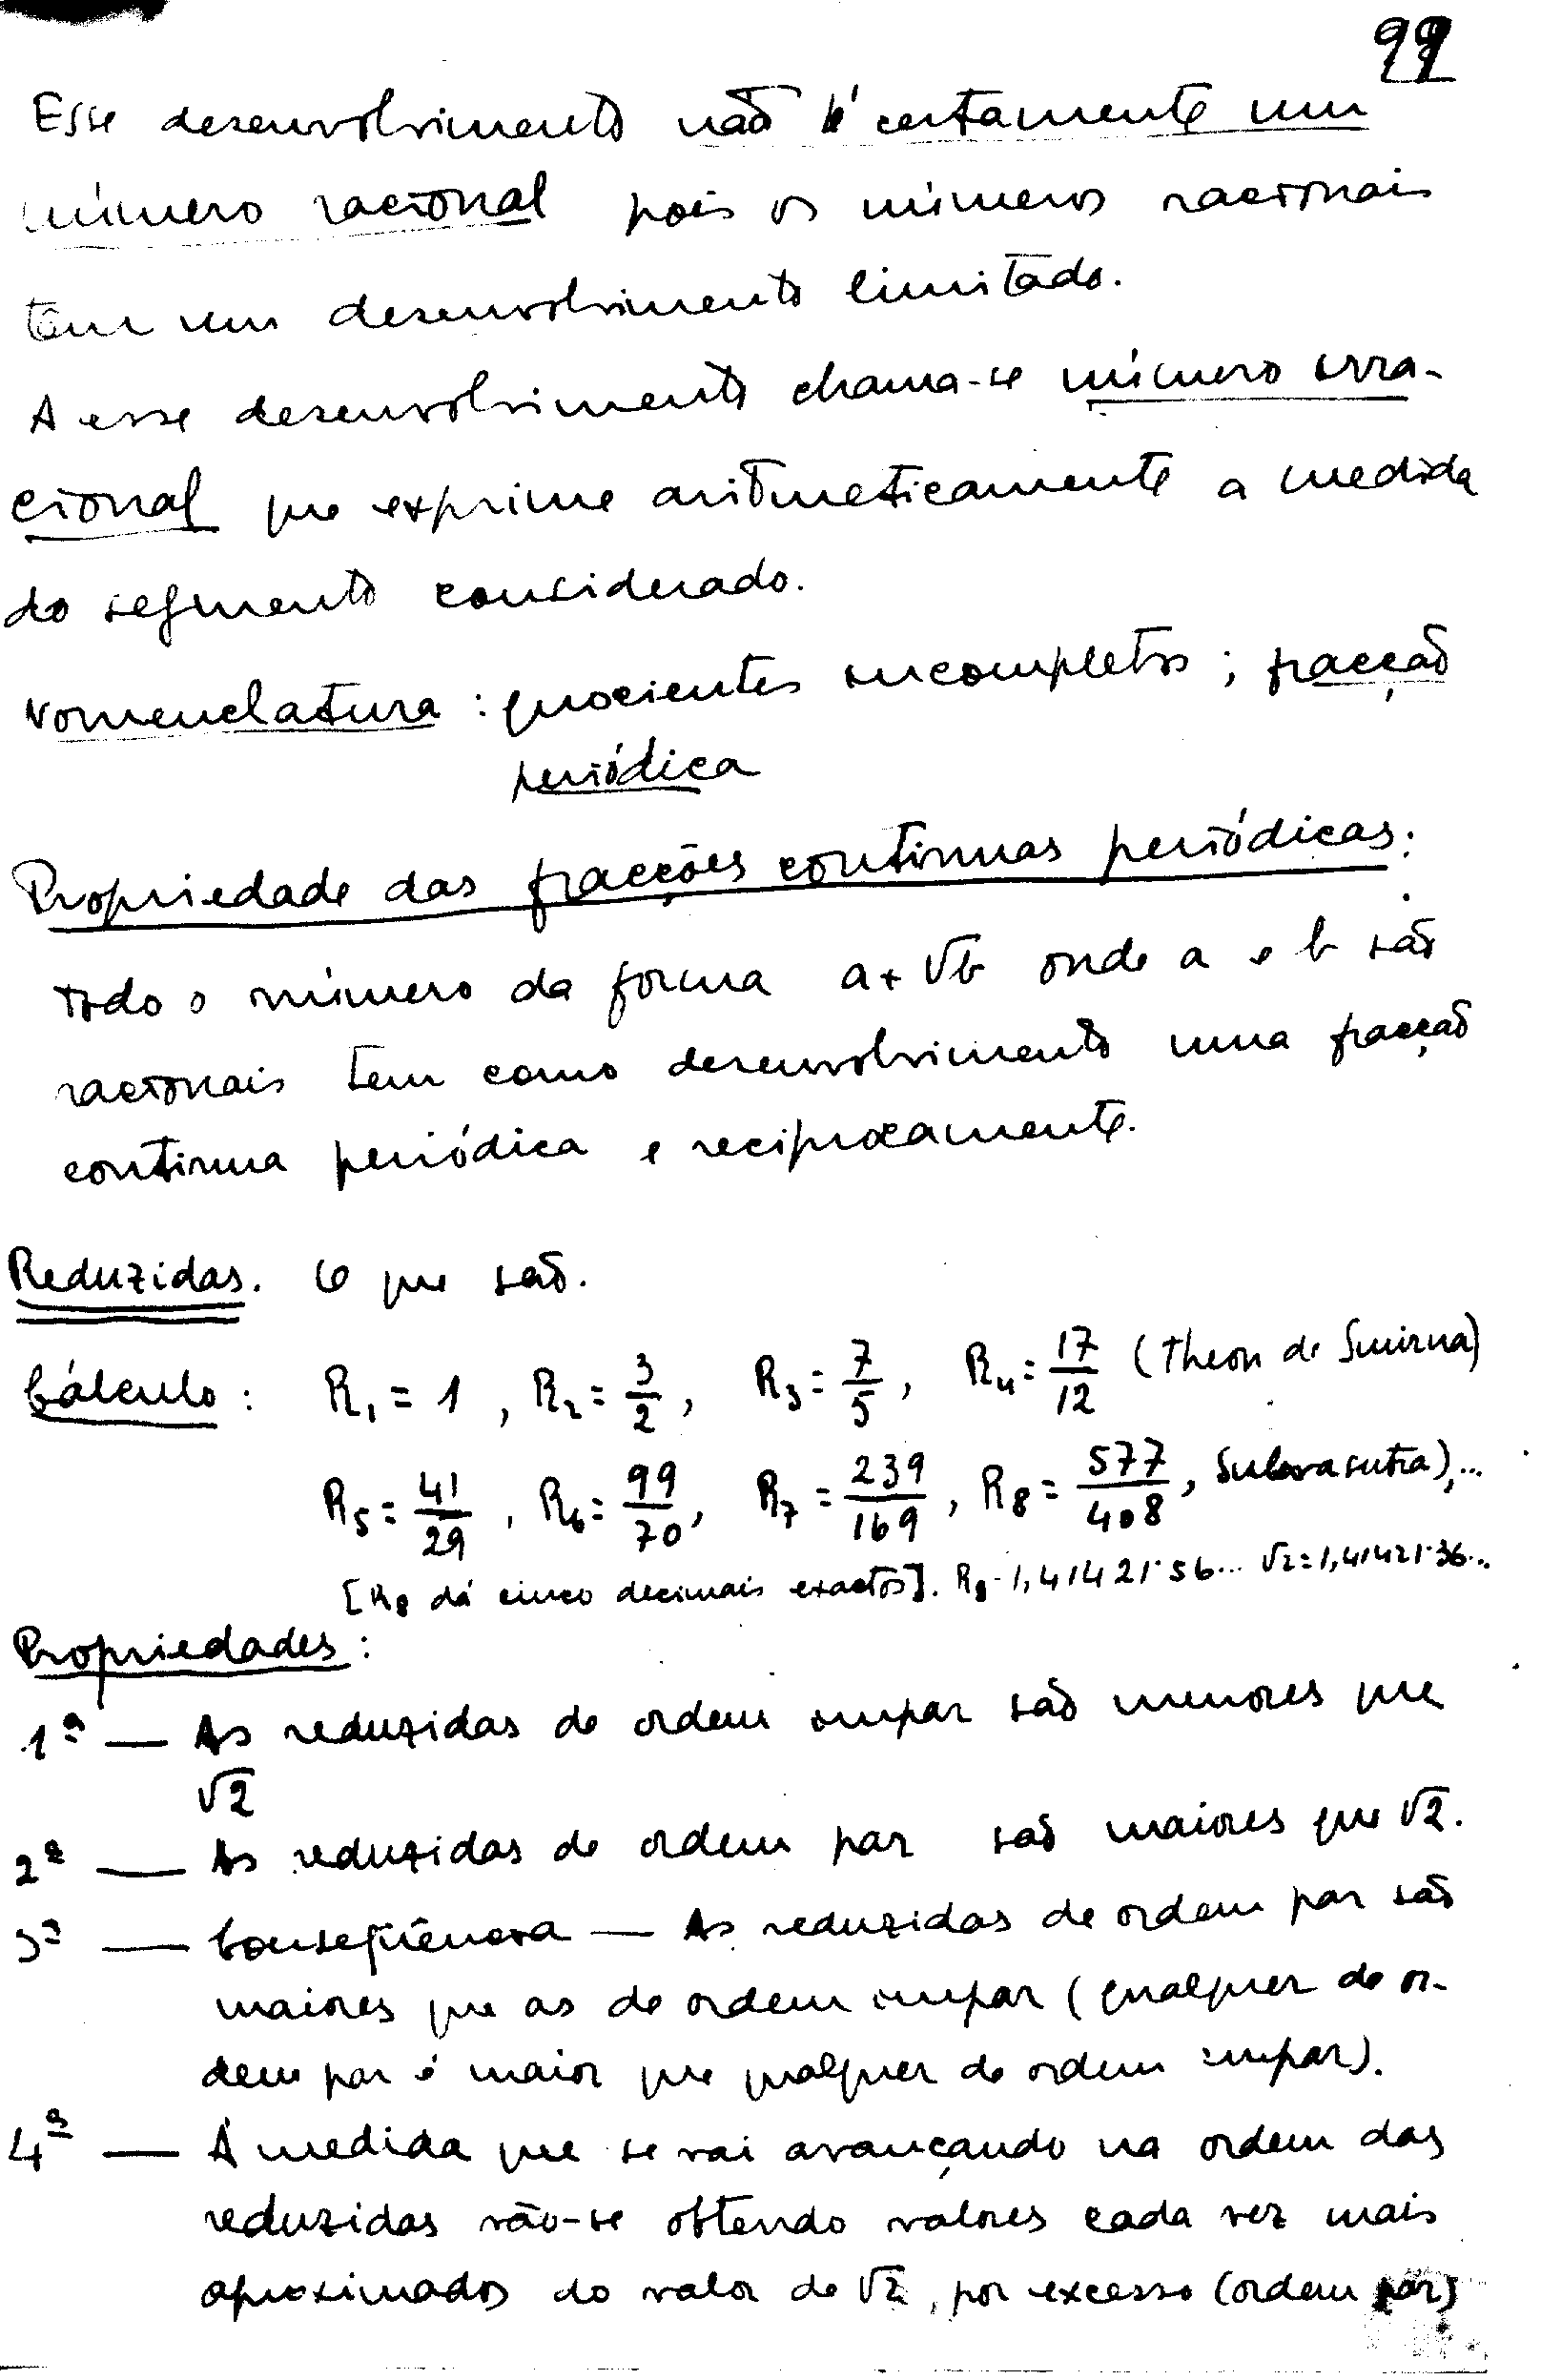 99
Esse desenvolvimento não é certamente um
número racional pois os números racionais
têm um desenvolvimento limitado.
A esse desenvolvimento chama-se número irra-
cional que exprime aritmeticamente a medida
do segmento considerado.
Nomenclatura : quocientes incompletos ; fracção
periódica
Propriedade das fracções contínuas periódicas:
todo o número da forma a+√b onde a e b são
racionais tem como desenvolvimento uma fracção
contínua periódica e reciprocamente.
Reduzidas. O que são.
Cálculo : R₁ = 1 , R₂ = 3/2 , R₃ = 7/5 , R₄ = 17/12 (Theon de Smirna)
R₅ = 41/29 , R₆ = 99/70 , R₇ = 239/169 , R₈ = 577/408 , Sulvasutra),...
[R₈ dá cinco decimais exactos]. R₈ = 1,41421·56... √2 = 1,41421·36...
Propriedades :
1ª — As reduzidas de ordem impar são menores que
√2
2ª — As reduzidas de ordem par são maiores que √2.
3ª — Conseqüência — As reduzidas de ordem par são
maiores que as de ordem impar (qualquer de or-
dem par é maior que qualquer de ordem impar).
4ª — À medida que se vai avançando na ordem das
reduzidas vão-se obtendo valores cada vez mais
aproximados do valor de √2, por excesso (ordem par)